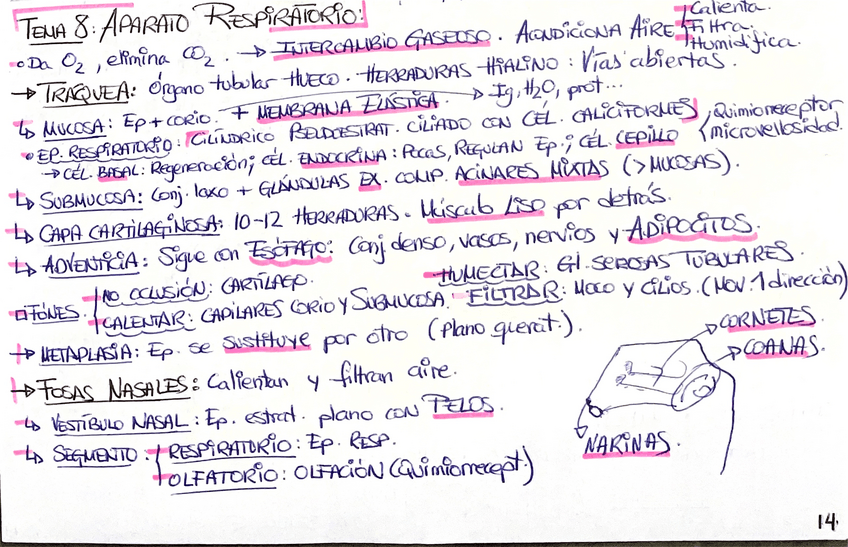 TEMA 8: APARATO RESPIRATORIO:
Calienta.
Filtra.
Humidifica.
Da O2, elimina CO2. → INTERCAMBIO GASEOSO. ACONDICIONA AIRE
→ TRAQUEA: Órgano tubular HUECO. HERRADURAS HIALINO: Vías abiertas.
↳ MUCOSA: Ep + corio. + MEMBRANA ELÁSTICA → Ig, H2O, prot...
• EP. RESPIRATORIO: CILÍNDRICO PSEUDOESTRAT. CILIADO CON CÉL. CALICIFORMES
Quimiorreceptor
microvellosidad.
→ CÉL. BASAL: Regeneración; CÉL. ENDOCRINA: POCAS, REGULAN Ep.; CÉL. CEPILLO
↳ SUBMUCOSA: Conj. laxo + GLÁNDULAS EX. COMP. ACINARES MIXTAS (> MUCOSAS).
↳ CAPA CARTILAGINOSA: 10-12 HERRADURAS. Músculo Liso por detrás.
↳ ADVENTICIA: Sigue con ESÓFAGO: Conj denso, vasos, nervios y ADIPOCITOS.
FONES.
NO OCLUSIÓN: CARTÍLAGO.
HUMECTAR: Gl. SEROSAS TUBULARES.
CALENTAR: CAPILARES CORIO Y SUBMUCOSA.
FILTRAR: MOCO y CILIOS. (MOV. 1 dirección)
→ METAPLASIA: Ep. se sustituye por otro (plano querat.).
→ FOSAS NASALES: Calientan y filtran aire.
↳ VESTÍBULO NASAL: Ep. estrat. plano con PELOS.
↳ SEGMENTO:
RESPIRATORIO: Ep. RESP.
OLFATORIO: OLFACIÓN (Quimiorrecept.)
CORNETES.
COANAS.
NARINAS.
14.